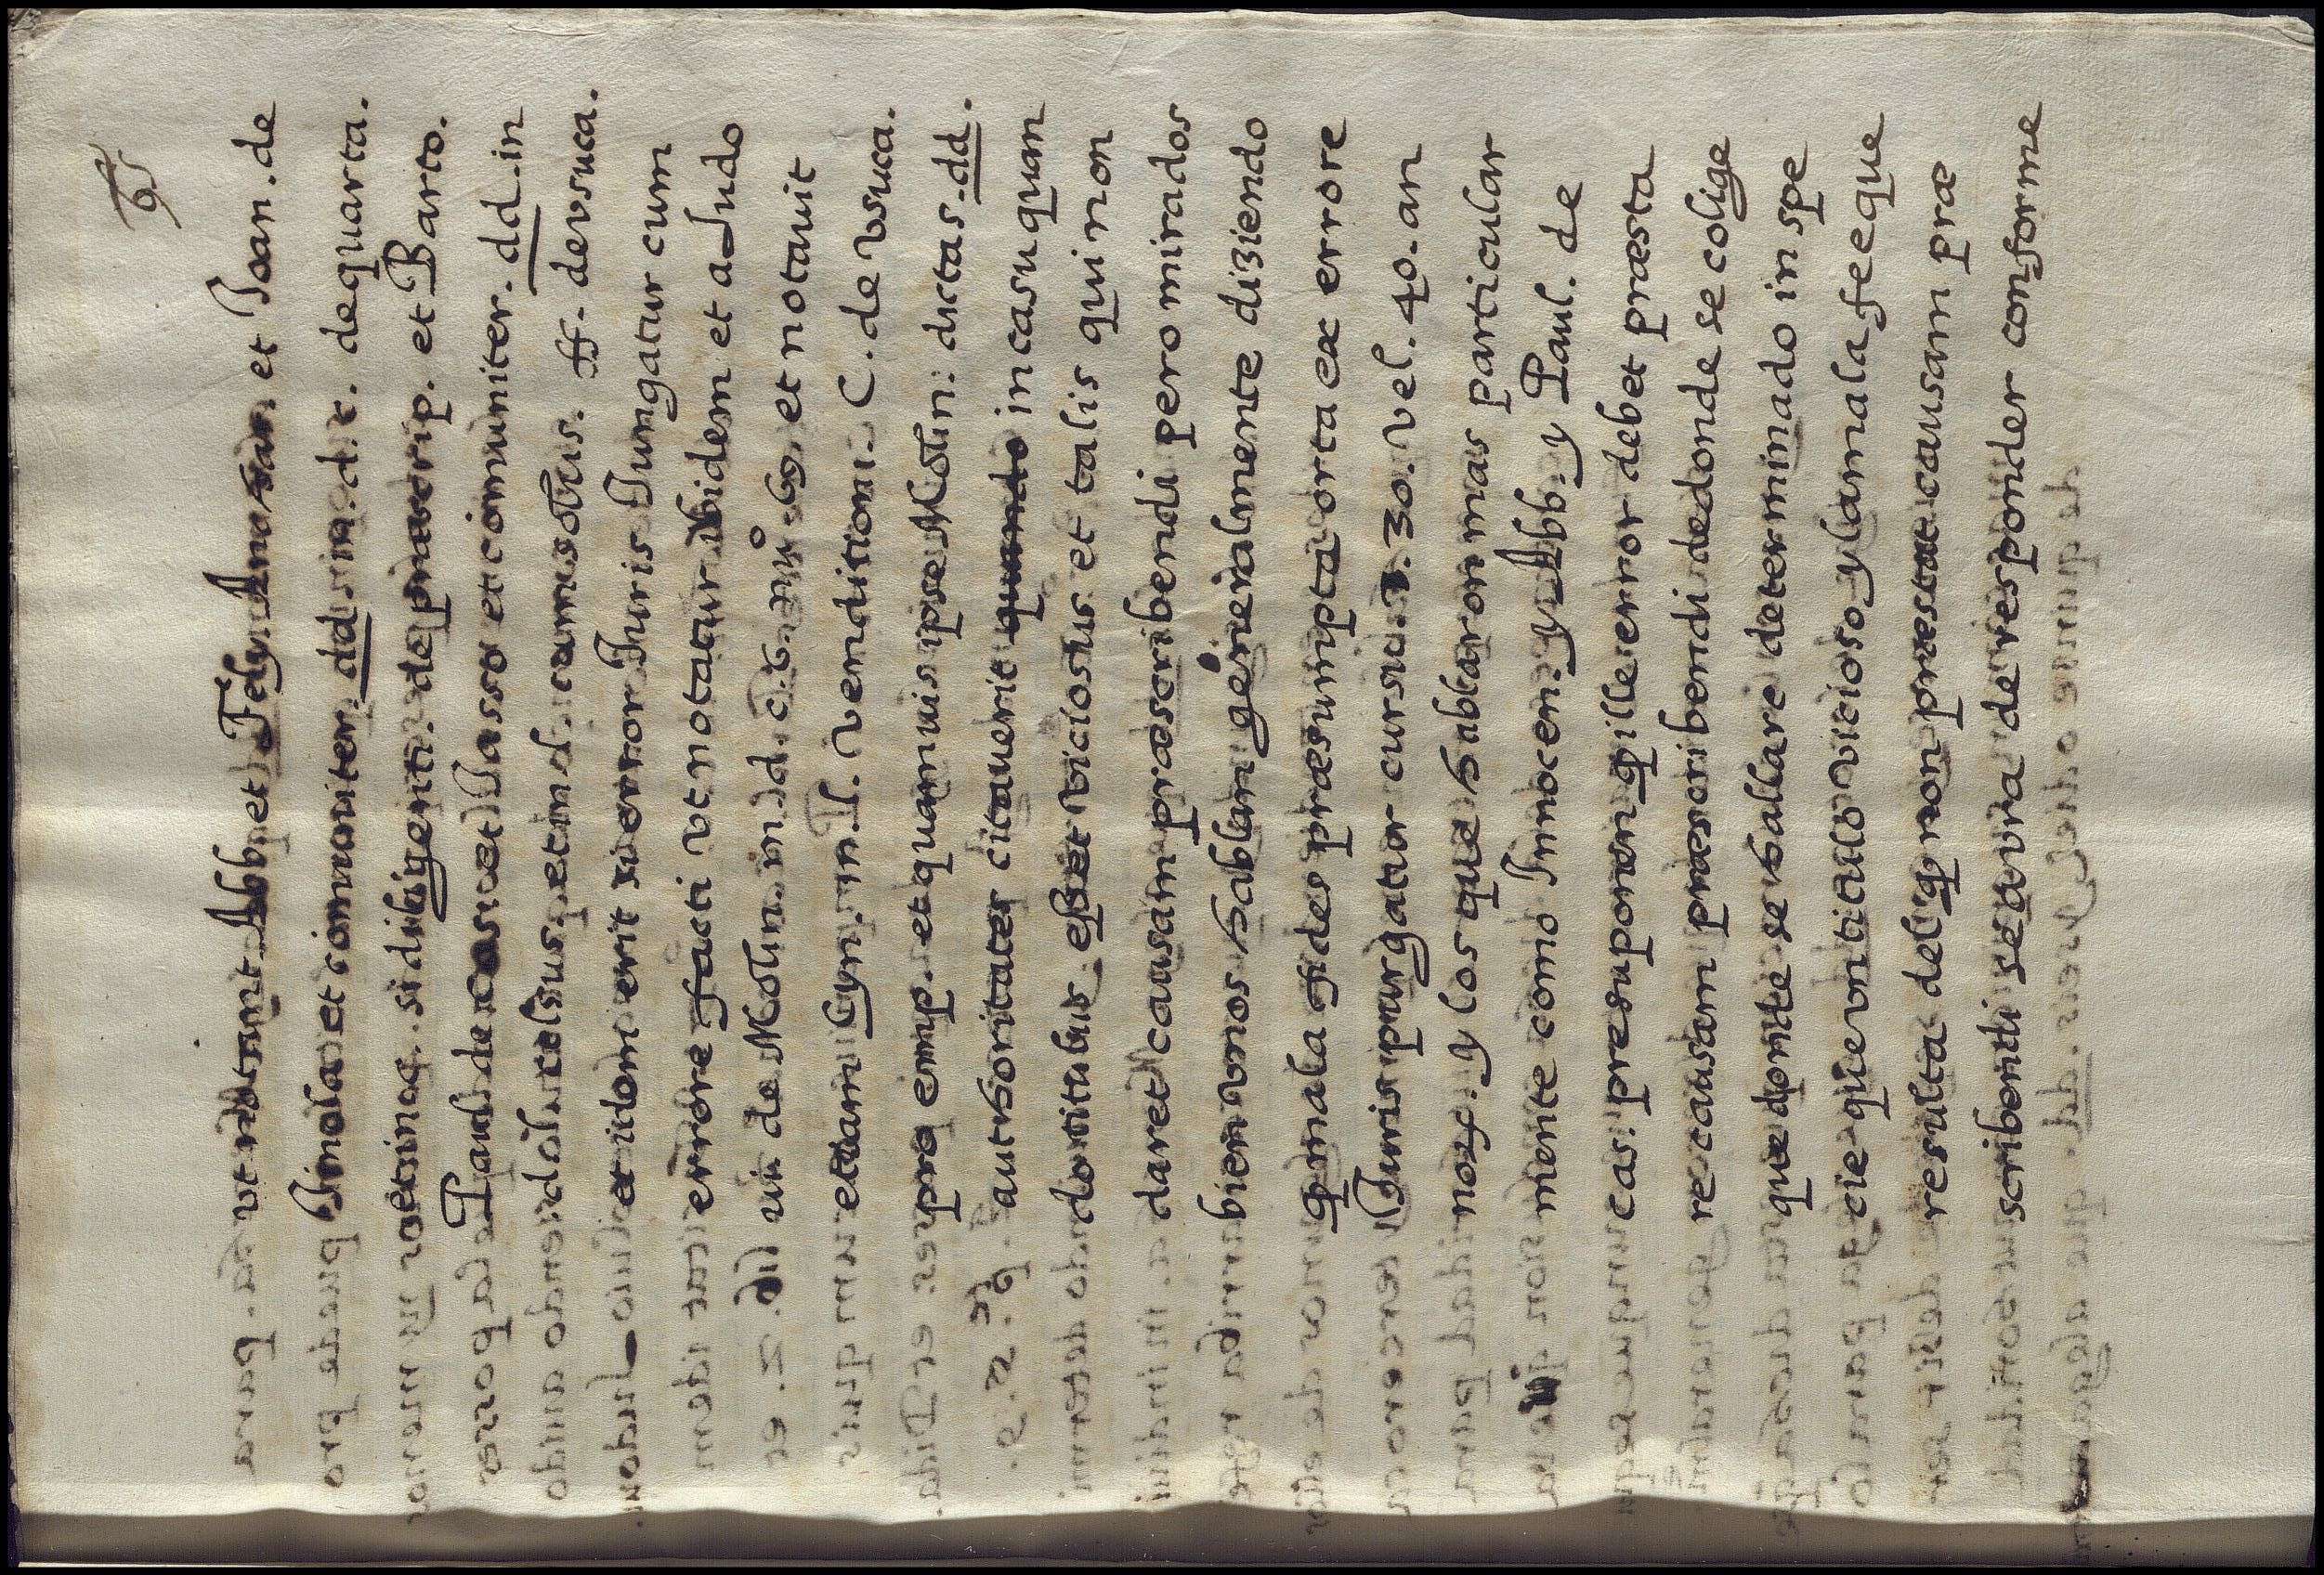 65
vt notant Abb. et Felyn. Ana. san et Joan. de
Imola et comoniter. dd. in. d. c. de quarta.
et in c. si diligenti. de præscrip. et Barto.
Paul. de cas. et Jasso et comuniter. dd. in
d. l. celsus. et in l. cum solus. ff. de vsuca.
et idem erit si error Juris Jungatur cum
errore facti vt notatur ibidem et a Judo
uic de Molin. in d. c. 6. nu.º 69. et notauit
etiam Cyn. in l. venditioni. C. de vsuca.
pro emp. et quamuis ipse Molin: dictas. dd.
authoritates citauerit quando in casu quan
do titulus esset viciosus et talis qui non
daret causam præscribendi pero mirados
bien vnos hablan generalmente diziendo
q mala fides præsumpta orta ex errore
Juris purgatur cursu. 30. vel. 40. an
nor. y los que hablaron mas particular
mente como Innocen. y Abb. y Paul. de
cas. presuponen q ille error debet præsta
re causam præscribendi de donde se colige
que donde se hallare determinado in spe
cie que vn titulo vicioso y la mala fee que
resulta del q non præstat causam præ
scribendi se avra de responder conforme